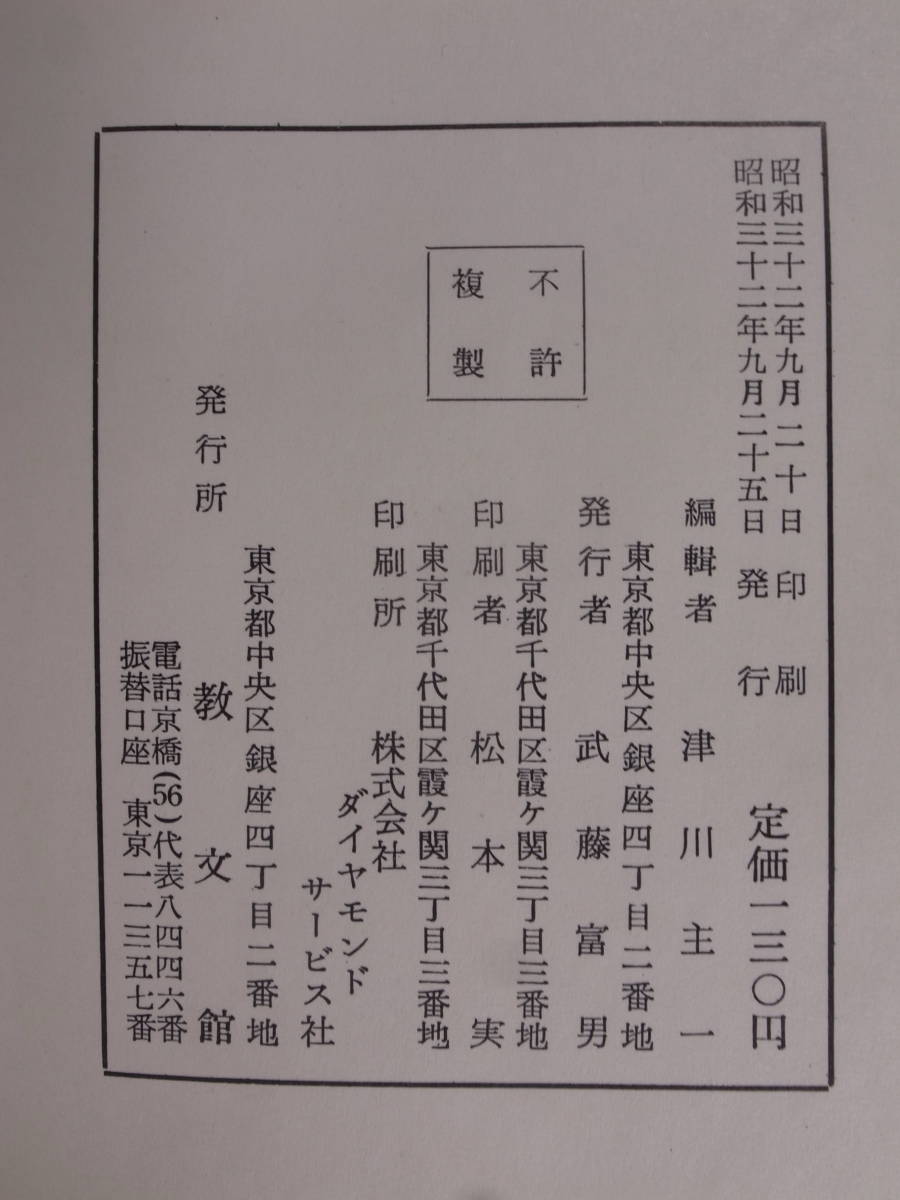 昭和三十二年九月二十日 印刷
昭和三十二年九月二十五日 発行
定価一三〇円
編輯者 津川主一
東京都中央区銀座四丁目二番地
発行者 武藤富男
東京都千代田区霞ヶ関三丁目三番地
印刷者 松本実
東京都千代田区霞ヶ関三丁目三番地
印刷所 株式会社
ダイヤモンド
サービス社
不許
複製
東京都中央区銀座四丁目二番地
発行所 教文館
電話京橋(56)代表八四四六番
振替口座 東京一一三五七番